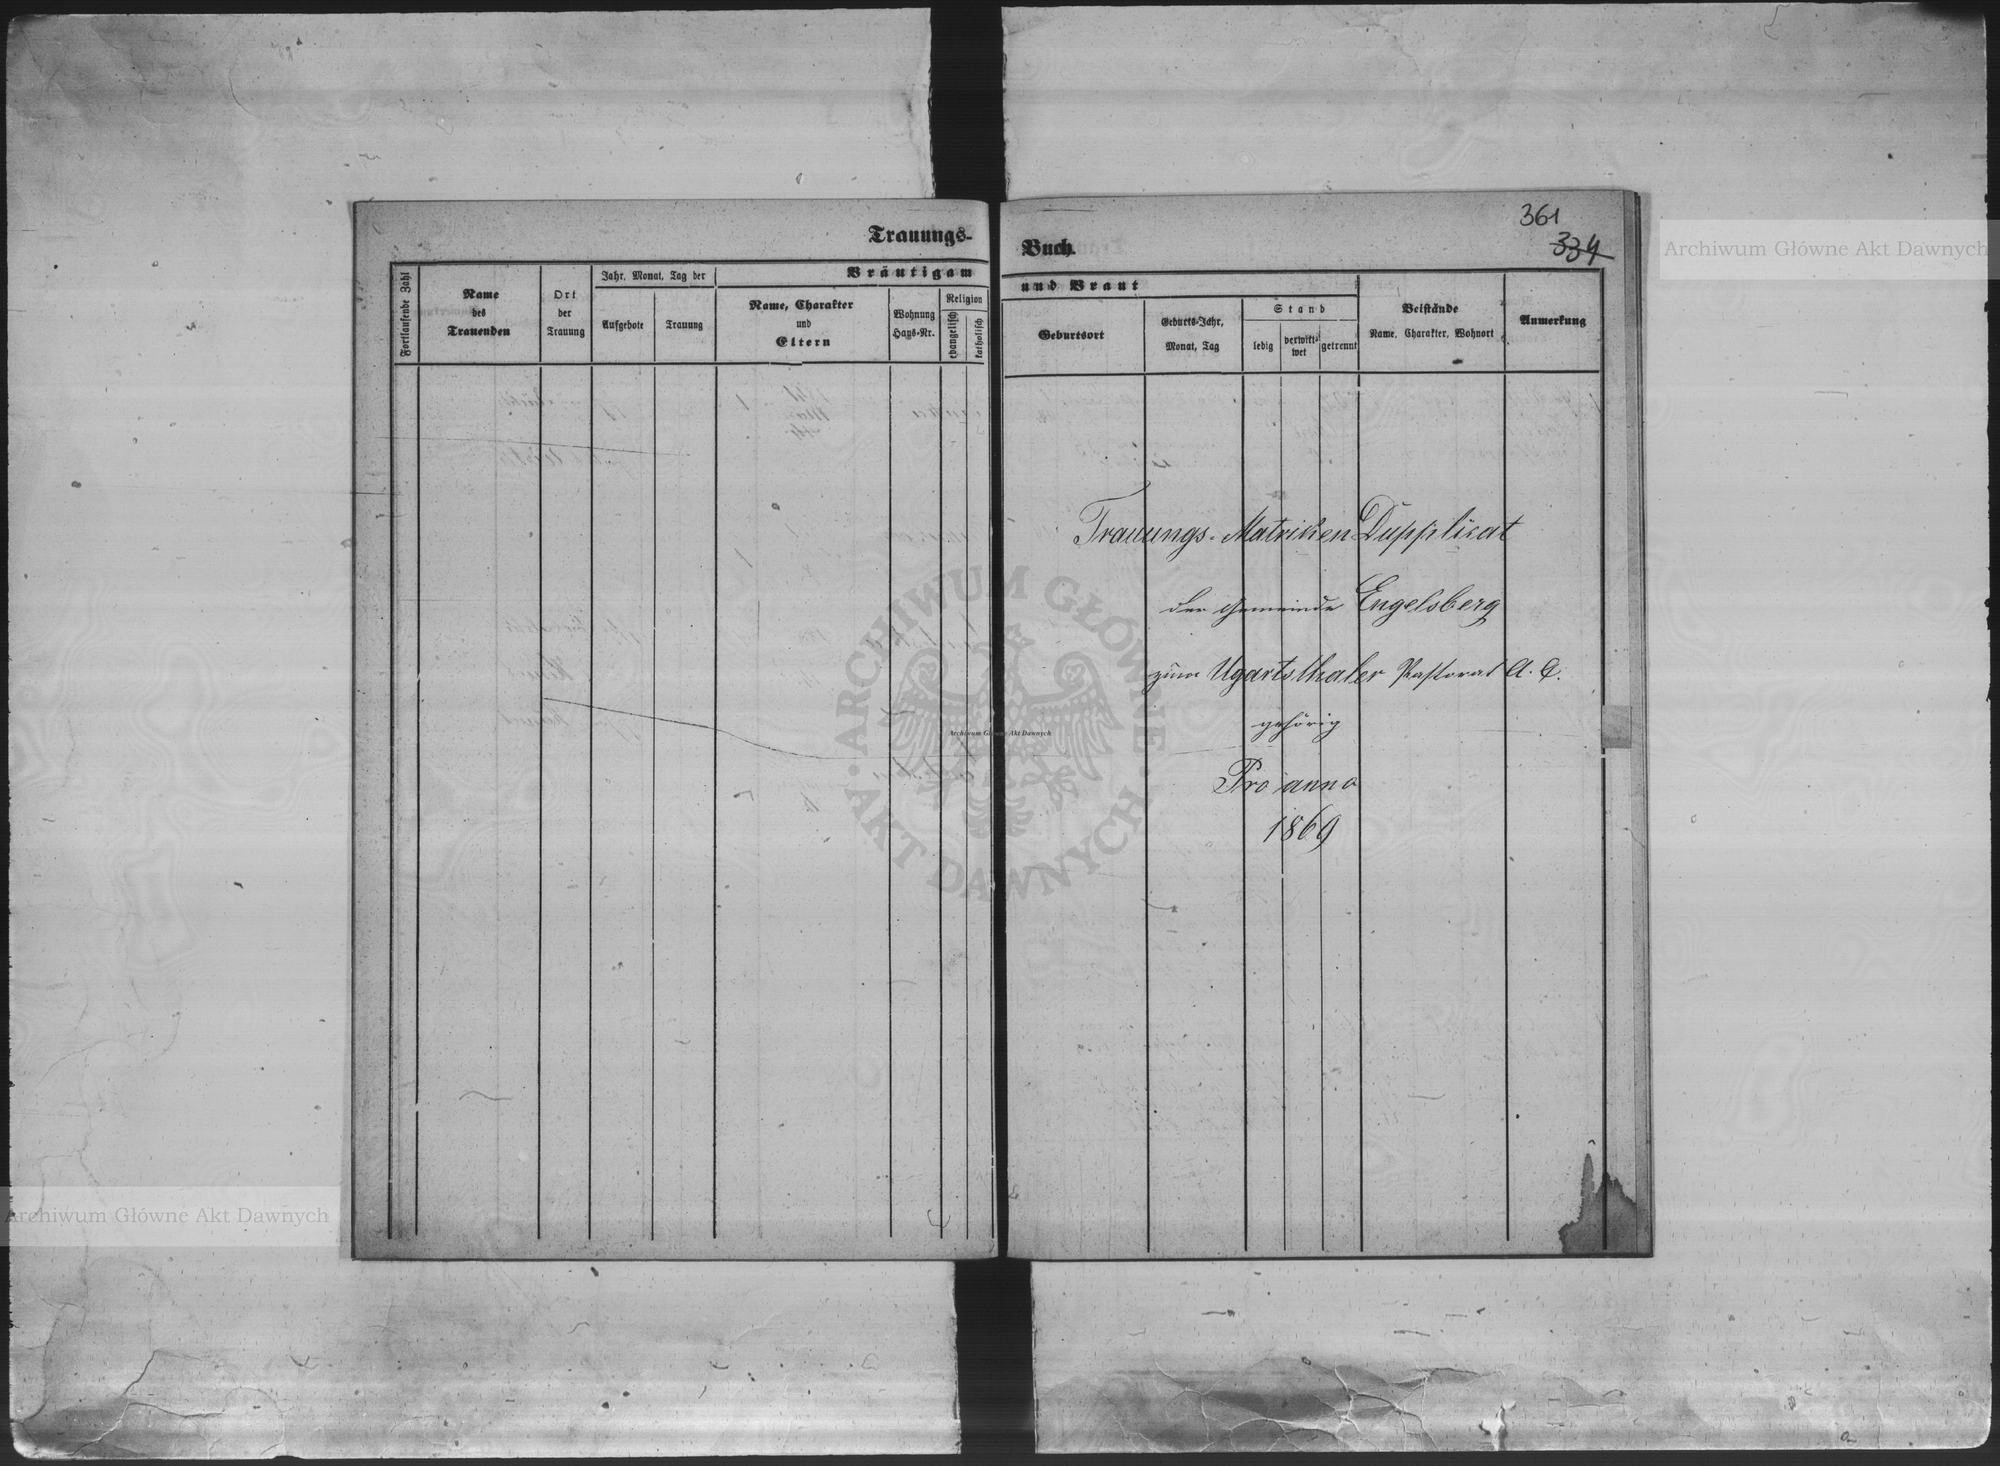 Trauungs-
Fortlaufende Zahl
Name
des
Trauenden
Ort
der
Trauung
Jahr, Monat, Tag der
Aufgebote
Trauung
Bräutigam
Name, Charakter
und
Eltern
Wohnung
Haus-Nr.
Religion
evangelisch
katholisch
361
334
Buch.
und Braut
Geburtsort
Geburts-Jahr,
Monat, Tag
Stand
ledig
verwitt-
wet
getrennt
Beistände
Name, Charakter, Wohnort
Anmerkung
Trauungs-Matriken Dupplicat
der Gemeinde Engelsberg
zum Ugartsthaler Pastorat A. C.
gehörig
Pro anno
1869
Archiwum Główne Akt Dawnych
ARCHIWUM GŁÓWNE
· AKT DAWNYCH ·
Archiwum Główne Akt Dawnych
Archiwum Główne Akt Dawnych